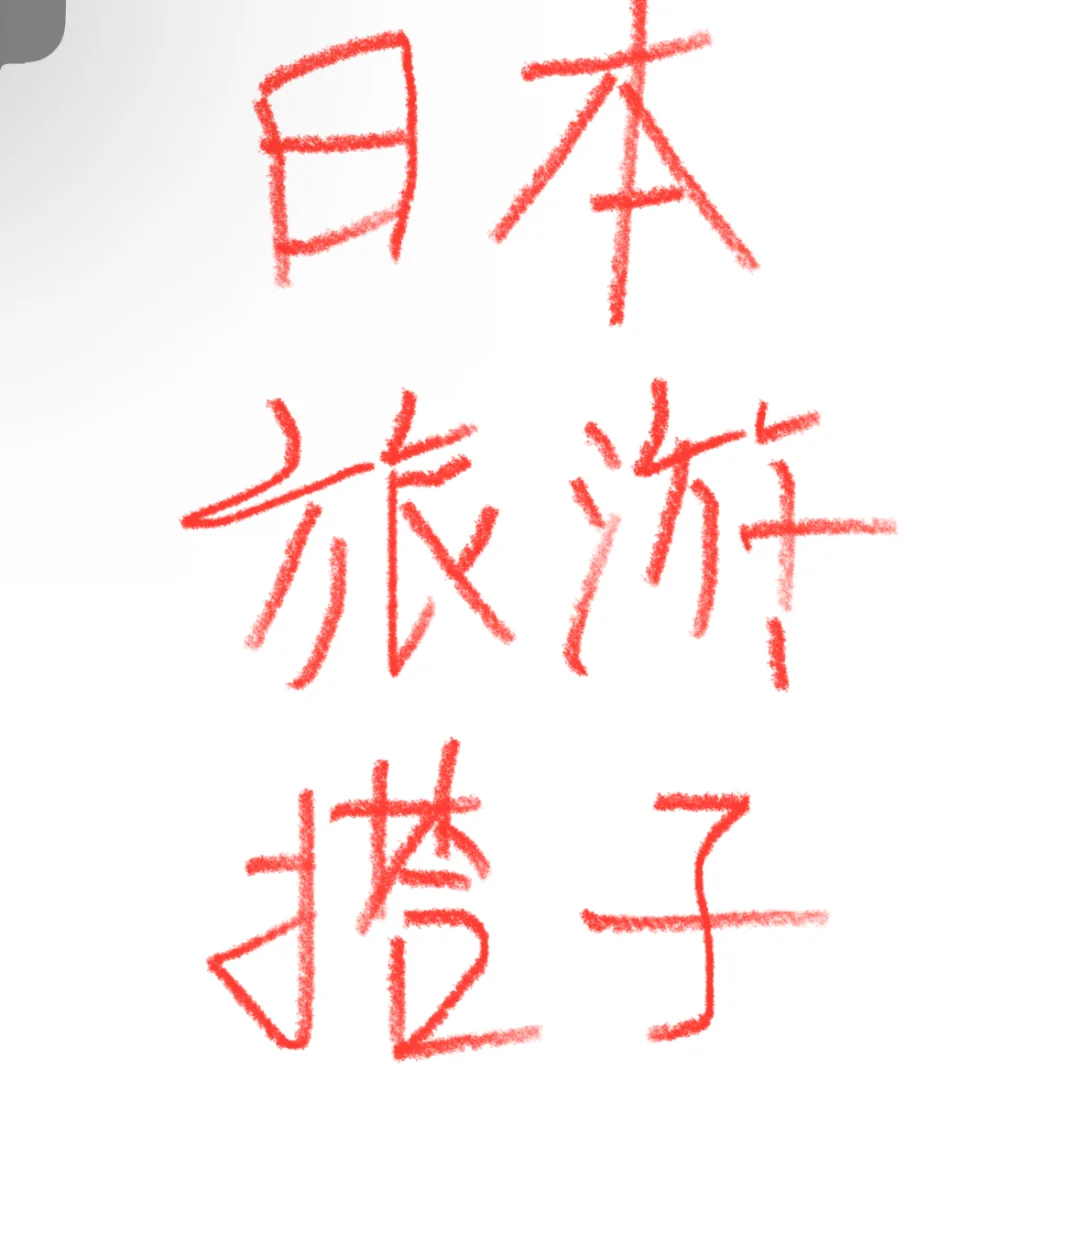 日本
旅游
搭子